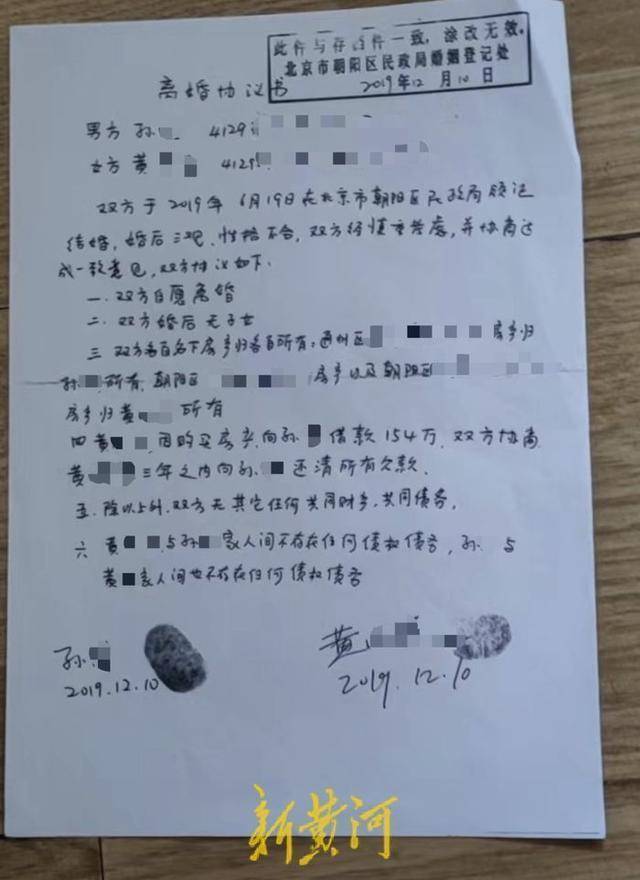 此件与存档件一致，涂改无效。
北京市朝阳区民政局婚姻登记处
2019年12月10日
离婚协议书
男方 孙 4129
女方 黄 4129
双方于2019年6月19日在北京市朝阳区民政局领证
结婚，婚后三观、性格不合，双方经慎重考虑，并协商达
成一致意见，双方协议如下：
一.双方自愿离婚
二.双方婚后无子女
三 双方各自名下房产归各自所有：通州区 房产归
孙 所有，朝阳区 房产以及朝阳区
房产归黄 所有
四 黄 因购买房产向孙 借款154万，双方协商
黄 三年之内向孙 还清所有欠款、
五.除以上外，双方无其它任何共同财产，共同债务，
六 黄 与孙 家人间不存在任何债权债务，孙 与
黄 家人间也不存在任何债权债务
孙
2019.12.10
黄
2019.12.10
新黄河